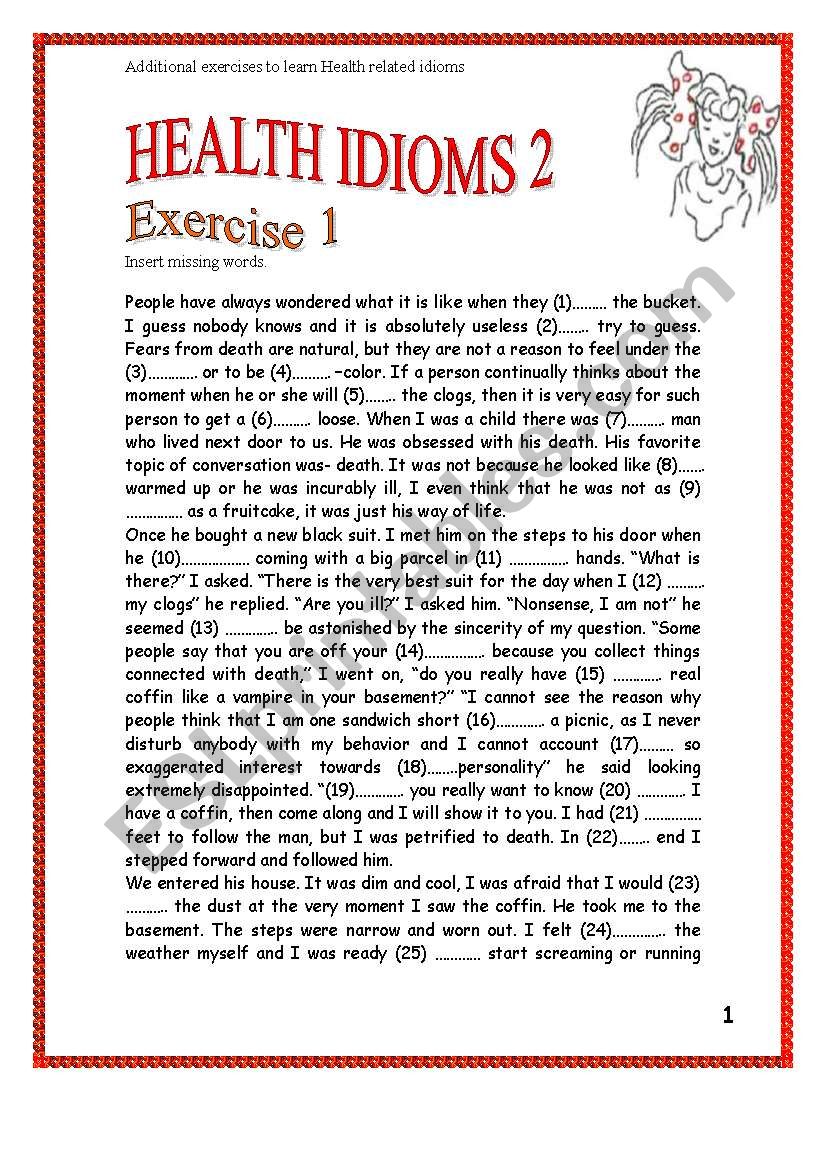 Additional exercises to learn Health related idioms
HEALTH IDIOMS 2
Exercise 1
Insert missing words.
People have always wondered what it is like when they (1)……… the bucket.
I guess nobody knows and it is absolutely useless (2)…….. try to guess.
Fears from death are natural, but they are not a reason to feel under the
(3)…………. or to be (4)………. –color. If a person continually thinks about the
moment when he or she will (5)…….. the clogs, then it is very easy for such
person to get a (6)………. loose. When I was a child there was (7)………. man
who lived next door to us. He was obsessed with his death. His favorite
topic of conversation was- death. It was not because he looked like (8)…….
warmed up or he was incurably ill, I even think that he was not as (9)
…………… as a fruitcake, it was just his way of life.
Once he bought a new black suit. I met him on the steps to his door when
he (10)……………… coming with a big parcel in (11) ……………. hands. “What is
there?” I asked. “There is the very best suit for the day when I (12) ……….
my clogs” he replied. “Are you ill?” I asked him. “Nonsense, I am not” he
seemed (13) ………….. be astonished by the sincerity of my question. “Some
people say that you are off your (14)……………. because you collect things
connected with death,” I went on, “do you really have (15) …………. real
coffin like a vampire in your basement?” “I cannot see the reason why
people think that I am one sandwich short (16)…………. a picnic, as I never
disturb anybody with my behavior and I cannot account (17)……… so
exaggerated interest towards (18)……..personality” he said looking
extremely disappointed. “(19)…………. you really want to know (20) …………. I
have a coffin, then come along and I will show it to you. I had (21) ……………
feet to follow the man, but I was petrified to death. In (22)…….. end I
stepped forward and followed him.
We entered his house. It was dim and cool, I was afraid that I would (23)
……….. the dust at the very moment I saw the coffin. He took me to the
basement. The steps were narrow and worn out. I felt (24)………….. the
weather myself and I was ready (25) ………… start screaming or running
1
ESLprintables.com